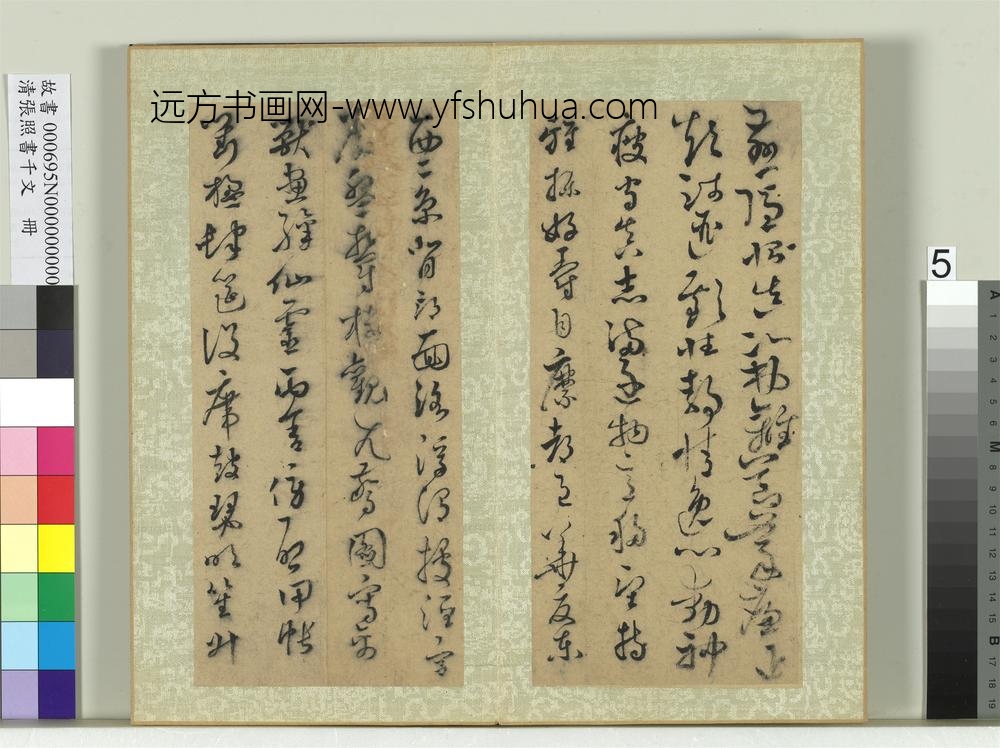 远方书画网-www.yfshuhua.com
慈隱惻造次弗離節義廉退
顛沛匪虧性靜情逸心動神
疲守真志滿逐物意移堅持
雅操好爵自縻都邑華夏東
西二京背邙面洛浮渭據涇宮
殿盤鬱樓觀飛驚圖寫禽
獸畫綵仙靈丙舍傍啓甲帳
對楹肆筵設席鼓瑟吹笙升
故書 000695N000000000
清張照書千文 冊
5
A 1 2 3 4 5 6 M 8 9 10 11 12 13 14 15 B 17 18 19